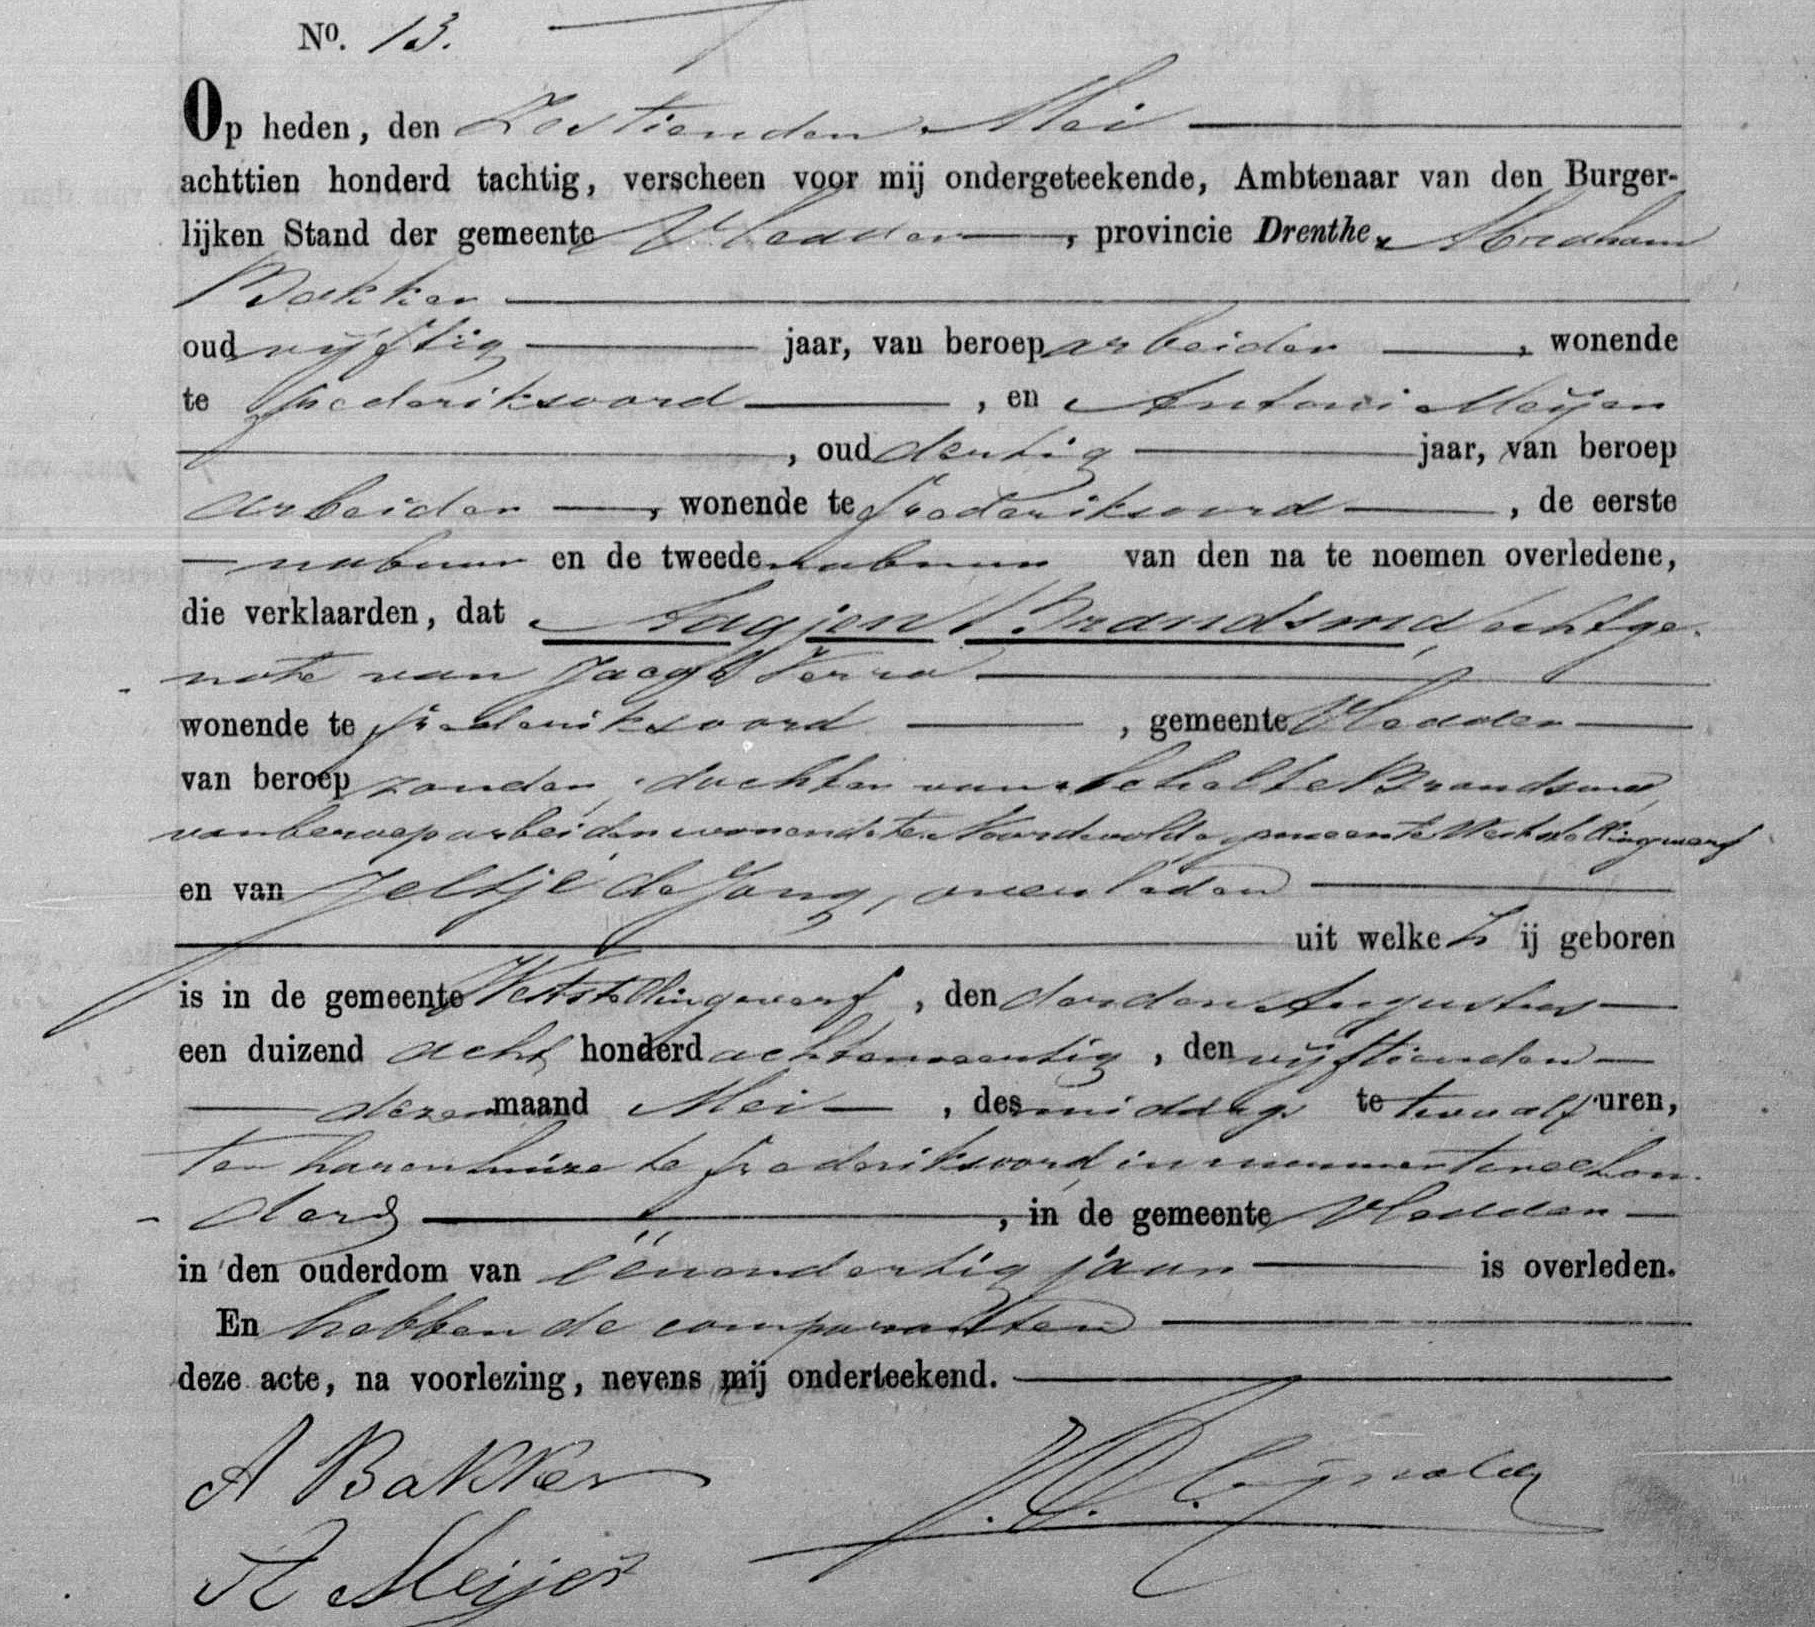 No. 13.
Op heden, den Zestienden Mei
achttien honderd tachtig, verscheen voor mij ondergeteekende, Ambtenaar van den Burger-
lijken Stand der gemeente Vledder, provincie Drenthe, Abraham
Bakker
oud vijftig jaar, van beroep arbeider, wonende
te Frederiksoord, en Antoni Meijer
, oud dertig jaar, van beroep
arbeider, wonende te Frederiksoord, de eerste
nabuur en de tweede nabuur van den na te noemen overledene,
die verklaarden, dat Aagjen Brandsma, echtge-
note van Jacob
wonende te Frederiksoord, gemeente Vledder
van beroep zonder, dochter van Scholte Brandsma,
van beroep arbeider wonende te Noordwolde gemeente Weststellingwerf
en van Jeltje de Jong, overleden
uit welke Zij geboren
is in de gemeente Weststellingwerf, den derden Augustus
een duizend acht honderd achtenveertig, den vijftienden
dezer maand Mei, des middags te twaalf uren,
ten haren huize te Frederiksoord, in nummer tweehon-
derd, in de gemeente Vledder
in den ouderdom van eenendertig jaar is overleden.
En hebben de comparanten
deze acte, na voorlezing, nevens mij onderteekend.
A Bakker
A Meijer